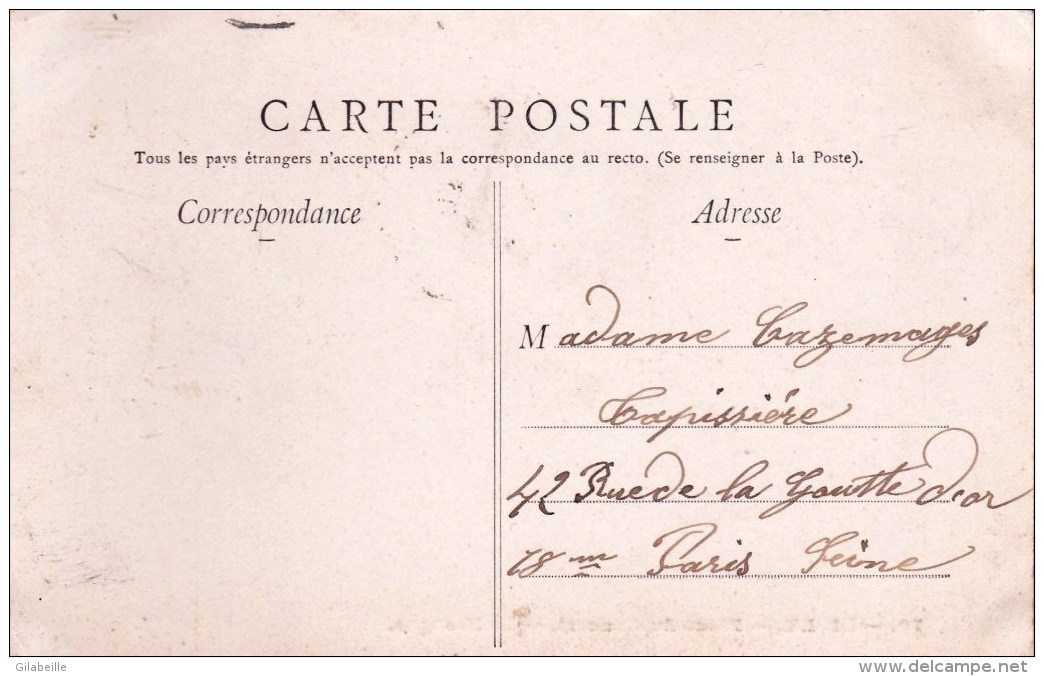 CARTE POSTALE
Tous les pays étrangers n'acceptent pas la correspondance au recto. (Se renseigner à la Poste).
Correspondance
Adresse
Madame Cazemages
Tapissière
42 Rue de la Goutte d'or
18 me Paris Seine
Gilabeille
www.delcampe.net